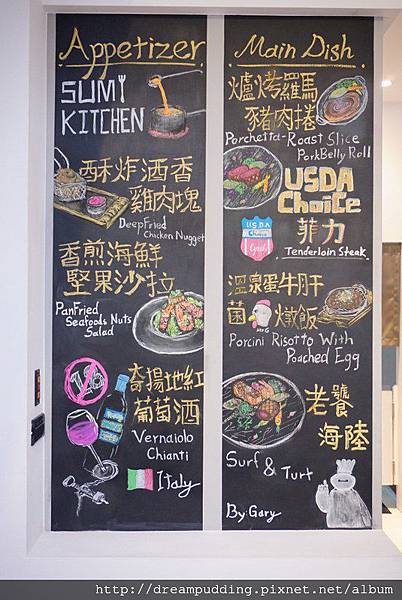 Appetizer
SUMY
KITCHEN
酥炸酒香
雞肉塊
DeepFried
Chicken Nugget
香煎海鮮
堅果沙拉
PanFried
Seafoods Nuts
Salad
18
奇揚地紅
葡萄酒
Vernaiolo
Chianti
Italy
Main Dish
爐烤羅馬
豬肉捲
Porchetta-Roast Slice
PorkBelly Roll
USDA
Choice
U.S.D.A
菲力
Tenderloin Steak
溫泉蛋牛肝
菌 燉飯
Porcini Risotto With
Poached Egg
老饕
海陸
Surf & Turf
By:Gary
http://dreampudding.pixnet.net/album